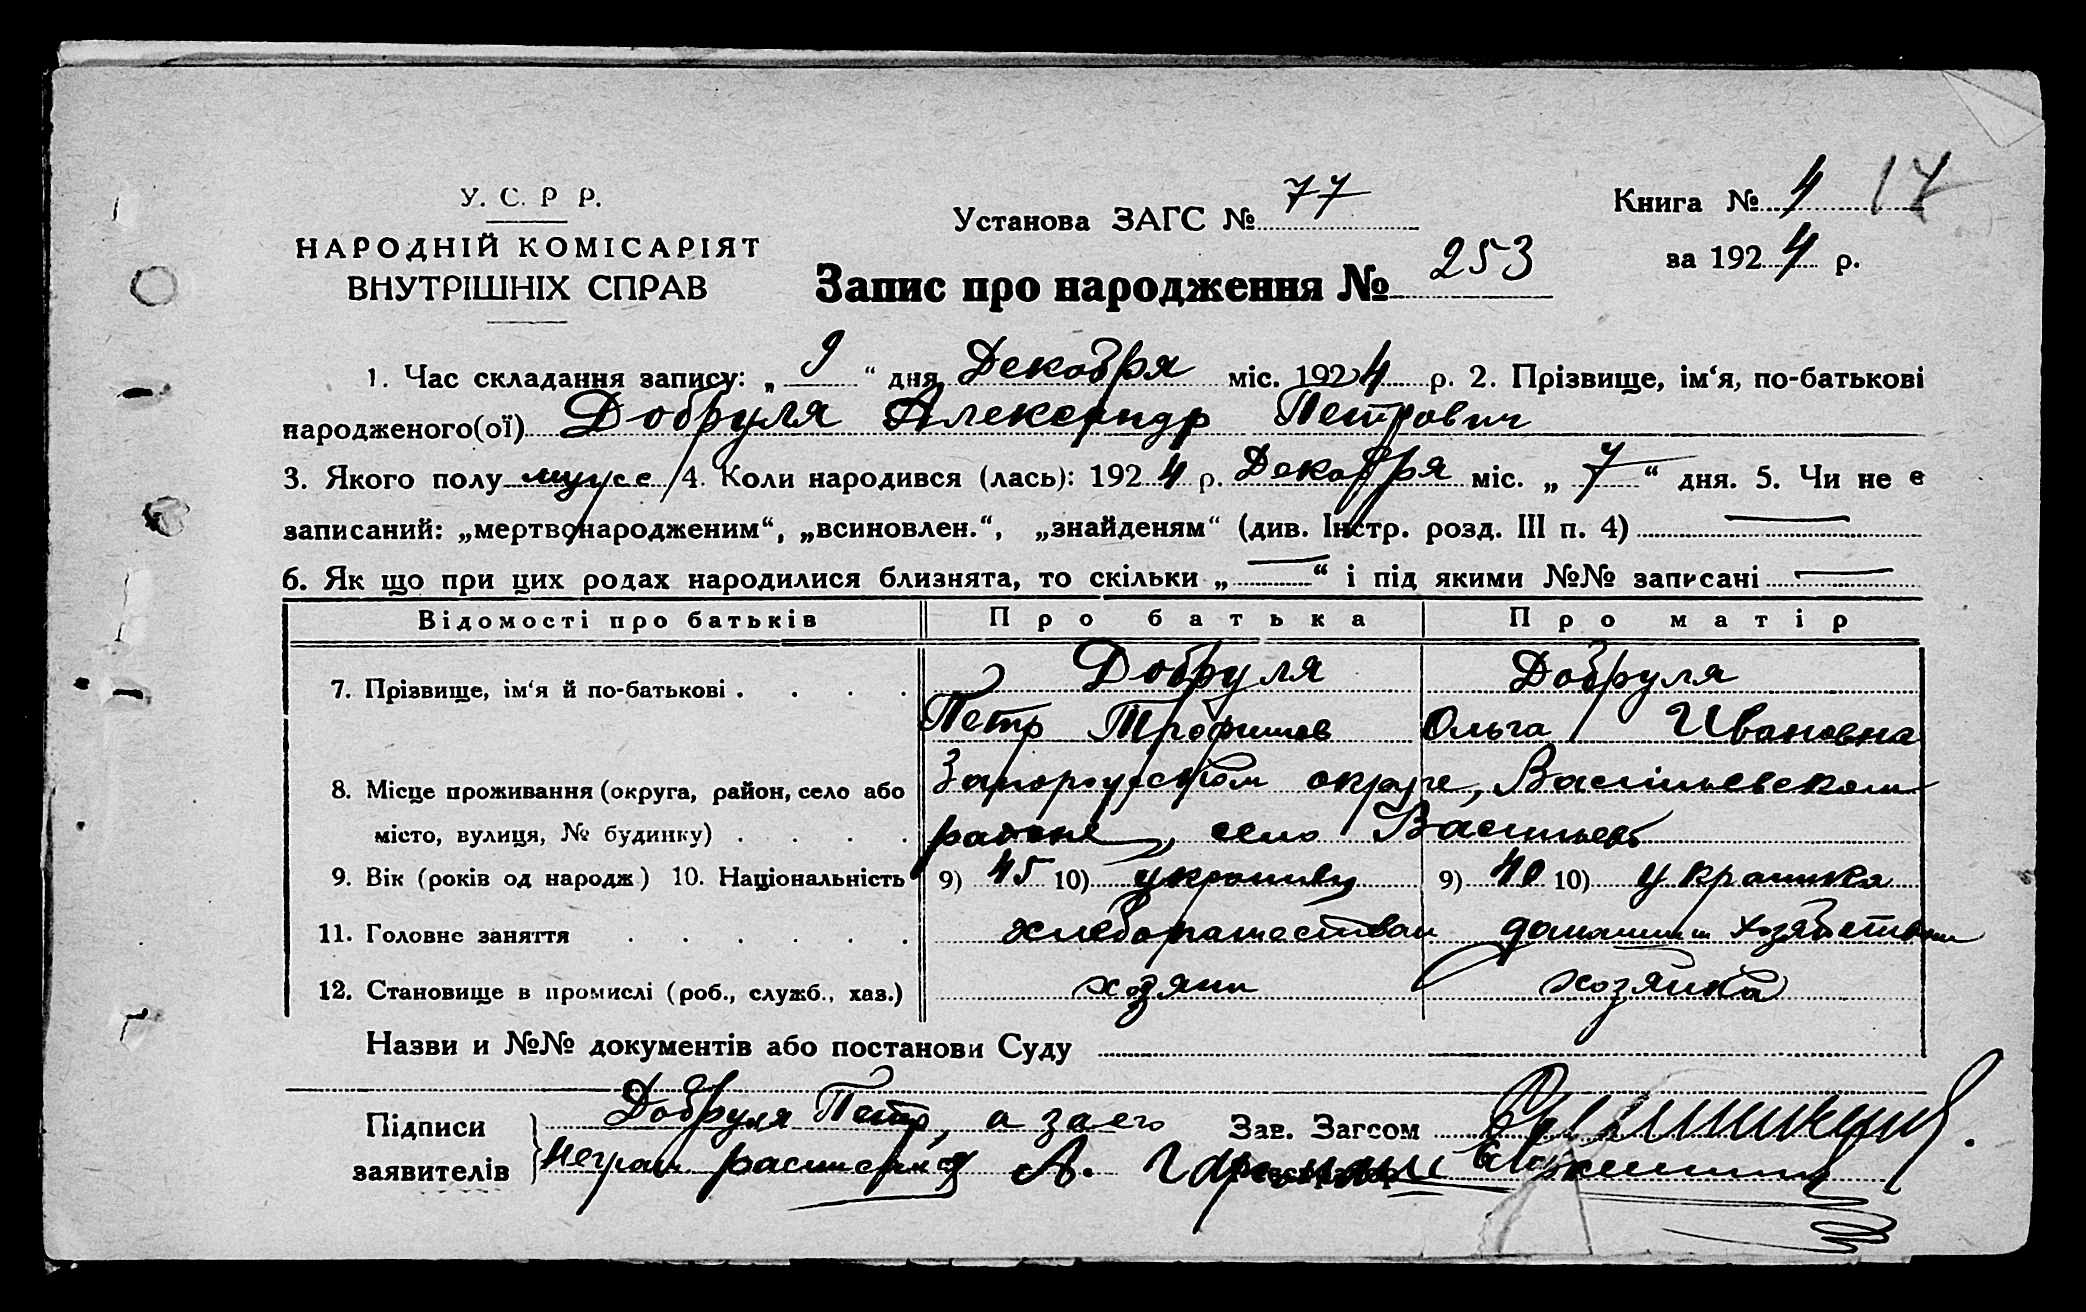 У. С. Р Р.
НАРОДНІЙ КОМІСАРІЯТ
ВНУТРІШНІХ СПРАВ
Установа ЗАГС № 77
Книга № 4 17
за 1924 р.
Запис про народження № 253
1. Час складання запису: „ 9 “ дня Декабря міс. 1924 р. 2. Прізвище, ім‘я, по-батькові
народженого(ої) Добруля Александр Петрович
3. Якого полу мужс 4. Коли народився (лась): 1924 р. Декабря міс. „ 7 “ дня. 5. Чи не є
записаний: „мертвонародженим“, „всиновлен.“, „знайденям“ (див. Інстр. розд. III п. 4)
6. Як що при цих родах народилися близнята, то скільки „ “ і під якими №№ записані
Відомості про батьків Про батька Про матір
7. Прізвище, ім‘я й по-батькові . . . . Добруля Добруля
Петр Трофимов Ольга Ивановна
8. Місце проживання (округа, район, село або Запорожском округе, Васильевском
місто, вулиця, № будинку) . . . . районе, село Васильевка
9. Вік (років од народж) 10. Національність 9) 45 10) украинец 9) 40 10) украинка
11. Головне заняття . . . . . . хлебопашеством домашним хозяйством
12. Становище в промислі (роб., служб., хаз.) хозяин хозяйка
Назви и №№ документів або постанови Суду
Підписи Добруля Петр, а за его Зав. Загсом
заявителів неграм расписался А.